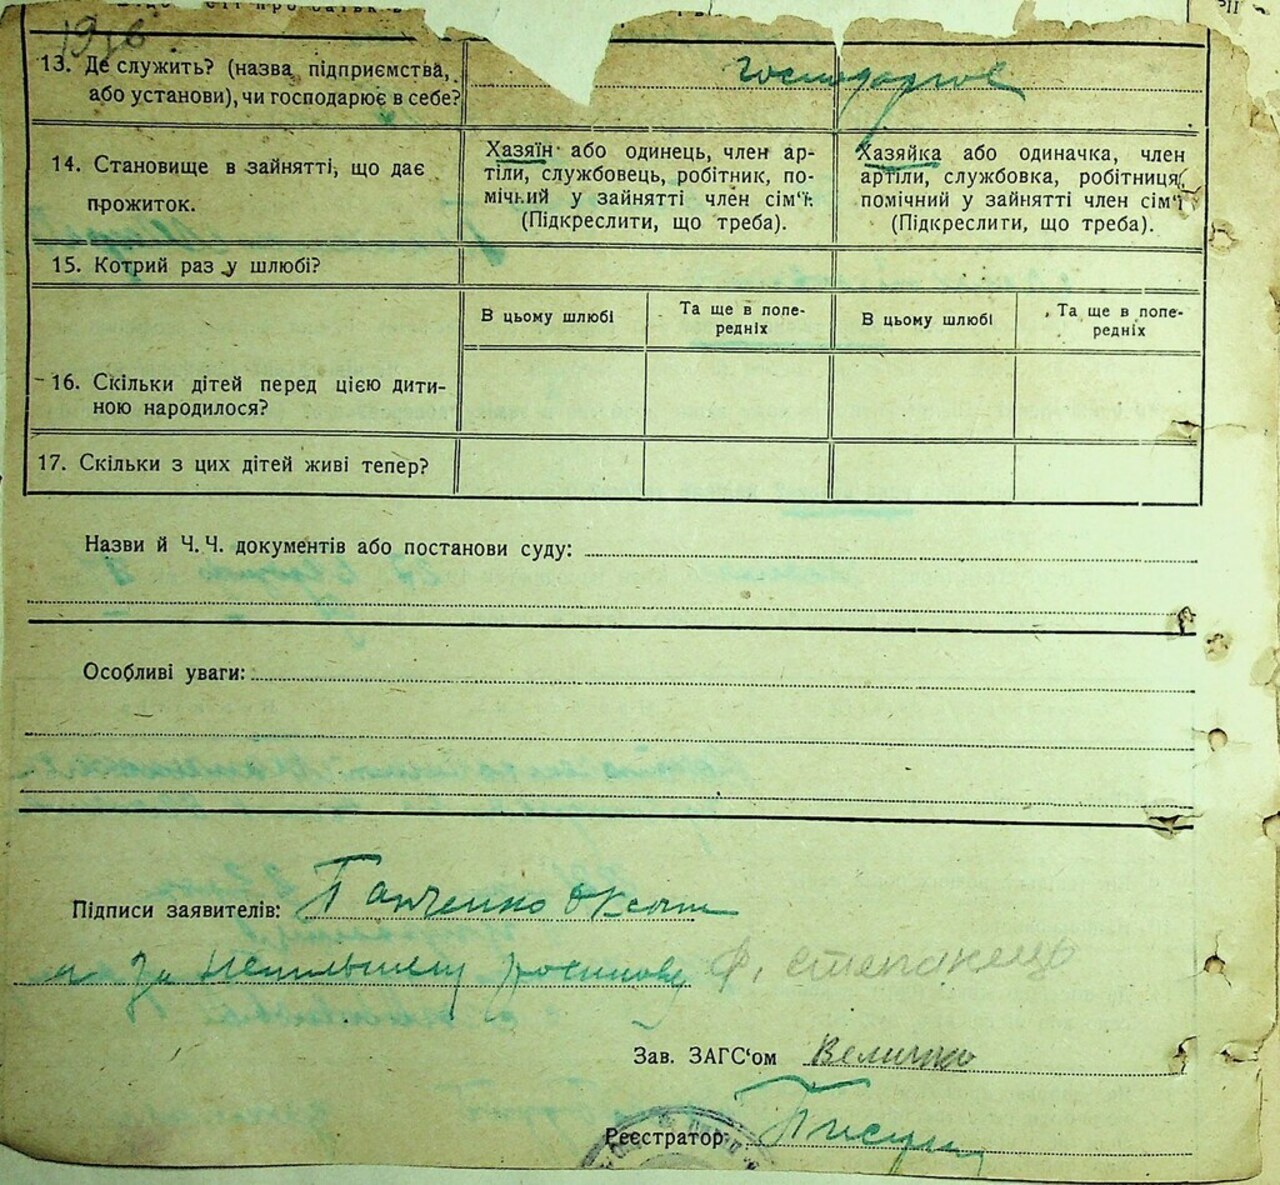 13. Де служить? (назва підприємства,
або установи), чи господарює в себе?
господарює
14. Становище в зайнятті, що дає
прожиток.
Хазяїн або одинець, член ар-
тіли, службовець, робітник, по-
мічний у зайнятті член сім'ї.
(Підкреслити, що треба).
Хазяйка або одиначка, член
артіли, службовка, робітниця,
помічний у зайнятті член сім'ї
(Підкреслити, що треба).
15. Котрий раз у шлюбі?
В цьому шлюбі
Та ще в попе-
редніх
В цьому шлюбі
Та ще в попе-
редніх
16. Скільки дітей перед цією дити-
ною народилося?
17. Скільки з цих дітей живі тепер?
Назви й Ч.Ч. документів або постанови суду:
Особливі уваги:
Підписи заявителів: Панченко Оксана
а за неписьмену росписався Ф. Степанець
Зав. ЗАГС'ом Величко
Реєстратор: